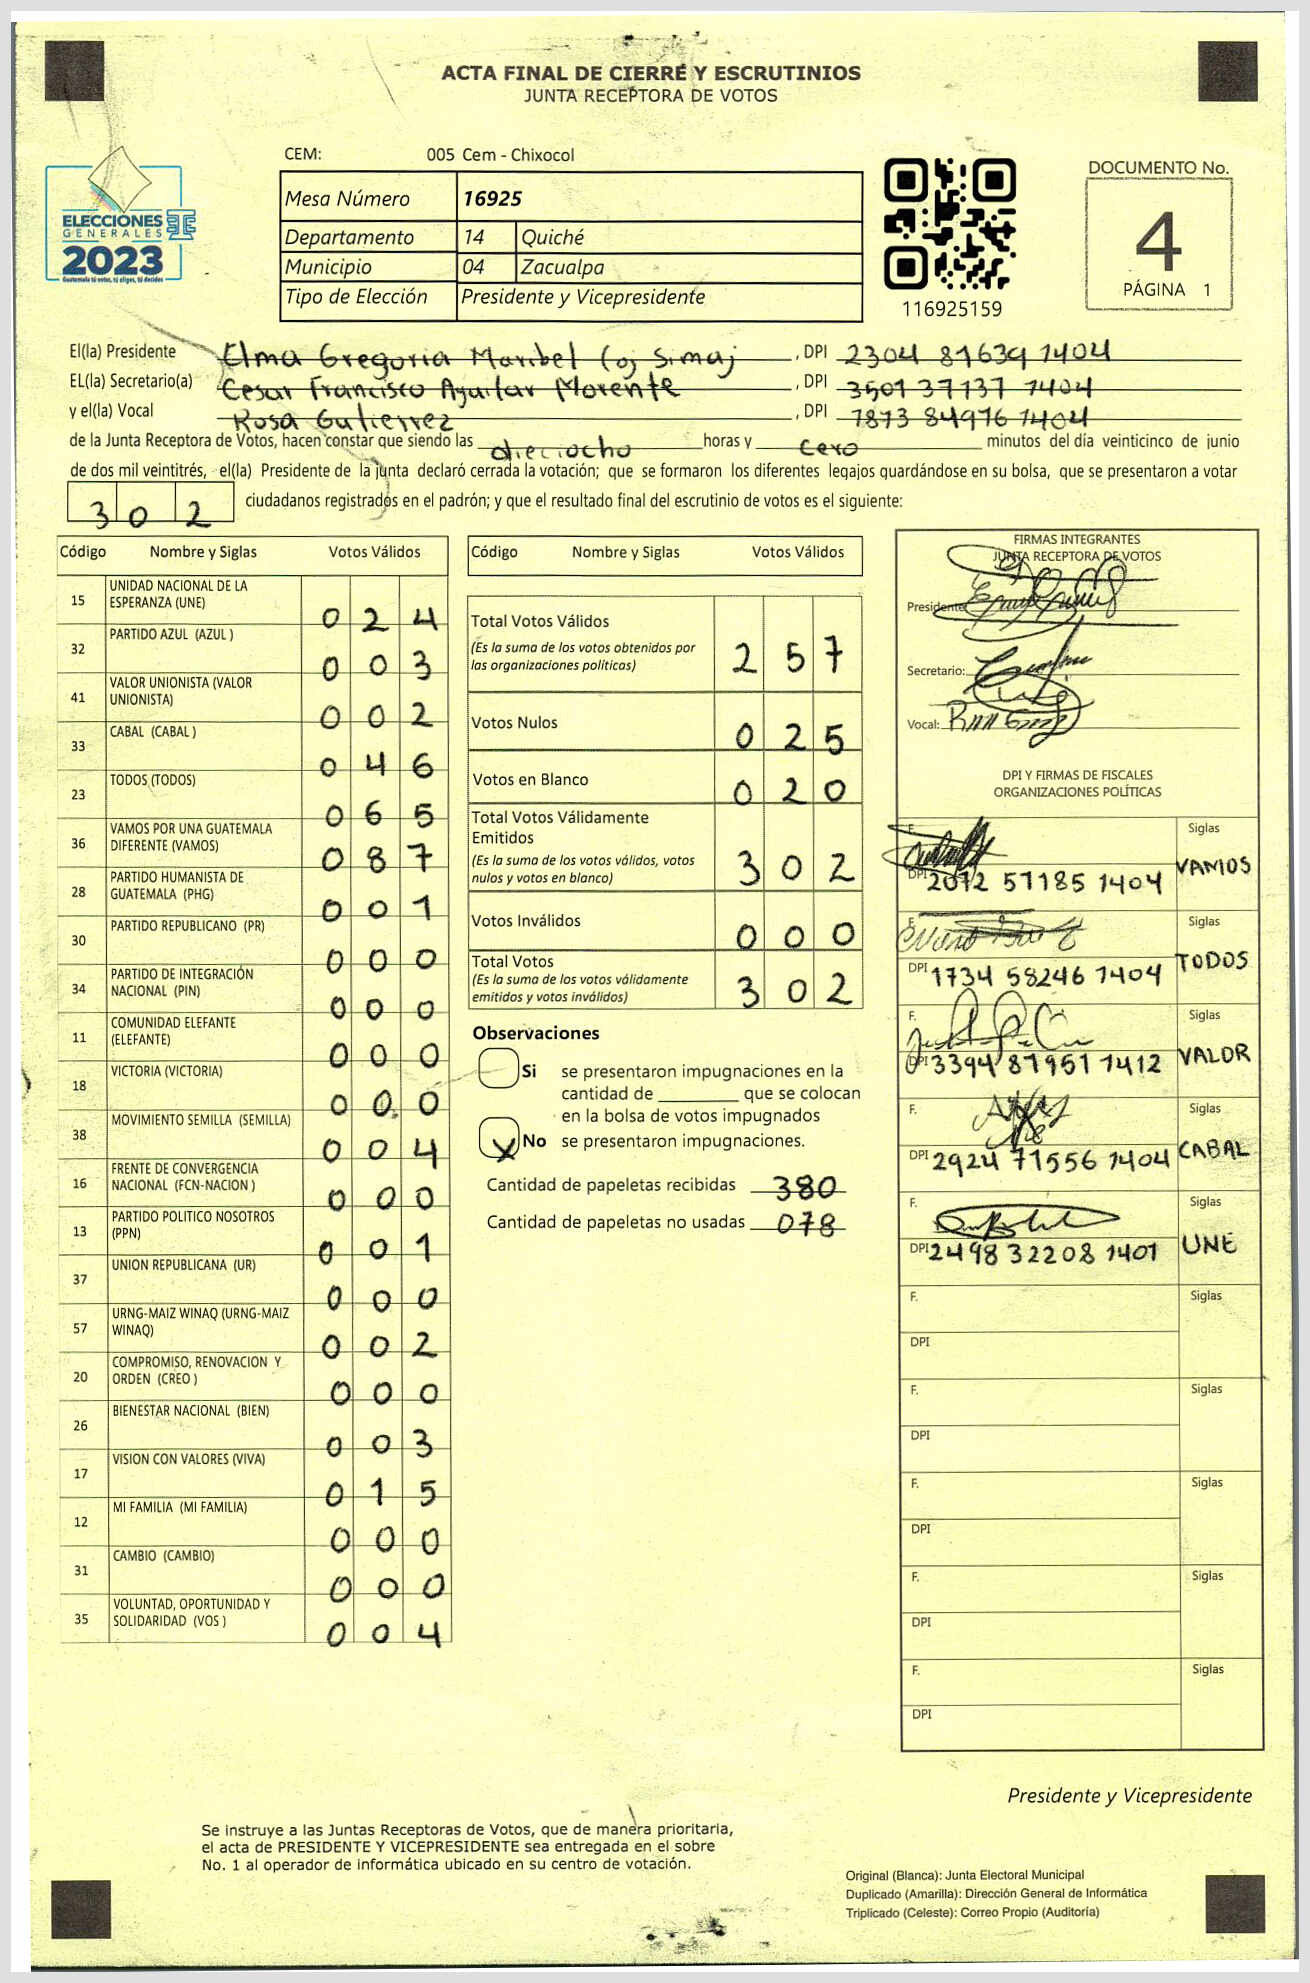 ACTA FINAL DE CIERRE Y ESCRUTINIOS
JUNTA RECEPTORA DE VOTOS
CEM: 005 Cem - Chixocol
ELECCIONES
GENERALES
2023
Guatemala tú votas, tú eliges, tú decides
Mesa Número 16925
Departamento 14 Quiché
Municipio 04 Zacualpa
Tipo de Elección Presidente y Vicepresidente
116925159
DOCUMENTO No.
4
PÁGINA 1
El(la) Presidente Elma Gregoria Maribel Coj Simaj , DPI 2304 81639 1404
EL(la) Secretario(a) Cesar Francisco Aguilar Morente , DPI 3501 37137 1404
y el(la) Vocal Rosa Gutierrez , DPI 7873 84976 1404
de la Junta Receptora de Votos, hacen constar que siendo las dieciocho horas y cero minutos del día veinticinco de junio
de dos mil veintitrés, el(la) Presidente de la junta declaró cerrada la votación; que se formaron los diferentes legajos guardándose en su bolsa, que se presentaron a votar
302 ciudadanos registrados en el padrón; y que el resultado final del escrutinio de votos es el siguiente:
Código Nombre y Siglas Votos Válidos
15 UNIDAD NACIONAL DE LA ESPERANZA (UNE) 024
32 PARTIDO AZUL (AZUL ) 003
41 VALOR UNIONISTA (VALOR UNIONISTA) 002
33 CABAL (CABAL ) 046
23 TODOS (TODOS) 065
36 VAMOS POR UNA GUATEMALA DIFERENTE (VAMOS) 087
28 PARTIDO HUMANISTA DE GUATEMALA (PHG) 001
30 PARTIDO REPUBLICANO (PR) 000
34 PARTIDO DE INTEGRACIÓN NACIONAL (PIN) 000
11 COMUNIDAD ELEFANTE (ELEFANTE) 000
18 VICTORIA (VICTORIA) 000
38 MOVIMIENTO SEMILLA (SEMILLA) 004
16 FRENTE DE CONVERGENCIA NACIONAL (FCN-NACION ) 000
13 PARTIDO POLITICO NOSOTROS (PPN) 001
37 UNION REPUBLICANA (UR) 000
57 URNG-MAIZ WINAQ (URNG-MAIZ WINAQ) 002
20 COMPROMISO, RENOVACION Y ORDEN (CREO ) 000
26 BIENESTAR NACIONAL (BIEN) 003
17 VISION CON VALORES (VIVA) 015
12 MI FAMILIA (MI FAMILIA) 000
31 CAMBIO (CAMBIO) 000
35 VOLUNTAD, OPORTUNIDAD Y SOLIDARIDAD (VOS ) 004
Código Nombre y Siglas Votos Válidos
Total Votos Válidos 257
(Es la suma de los votos obtenidos por
las organizaciones políticas)
Votos Nulos 025
Votos en Blanco 020
Total Votos Válidamente
Emitidos 302
(Es la suma de los votos válidos, votos
nulos y votos en blanco)
Votos Inválidos 000
Total Votos 302
(Es la suma de los votos válidamente
emitidos y votos inválidos)
Observaciones
Si se presentaron impugnaciones en la
cantidad de ________ que se colocan
en la bolsa de votos impugnados
X No se presentaron impugnaciones.
Cantidad de papeletas recibidas 380
Cantidad de papeletas no usadas 078
FIRMAS INTEGRANTES
JUNTA RECEPTORA DE VOTOS
Presidente:
Secretario:
Vocal:
DPI Y FIRMAS DE FISCALES
ORGANIZACIONES POLÍTICAS
F. Siglas
DPI 2072 57185 1404 VAMOS
F. Siglas
DPI 1734 58246 1404 TODOS
F. Siglas
DPI 3394 87951 1412 VALOR
F. Siglas
DPI 2924 71556 1404 CABAL
F. Siglas
DPI 2498 32208 1401 UNE
F. Siglas
DPI
F. Siglas
DPI
F. Siglas
DPI
F. Siglas
DPI
F. Siglas
DPI
Presidente y Vicepresidente
Se instruye a las Juntas Receptoras de Votos, que de manera prioritaria,
el acta de PRESIDENTE Y VICEPRESIDENTE sea entregada en el sobre
No. 1 al operador de informática ubicado en su centro de votación.
Original (Blanca): Junta Electoral Municipal
Duplicado (Amarilla): Dirección General de Informática
Triplicado (Celeste): Correo Propio (Auditoría)